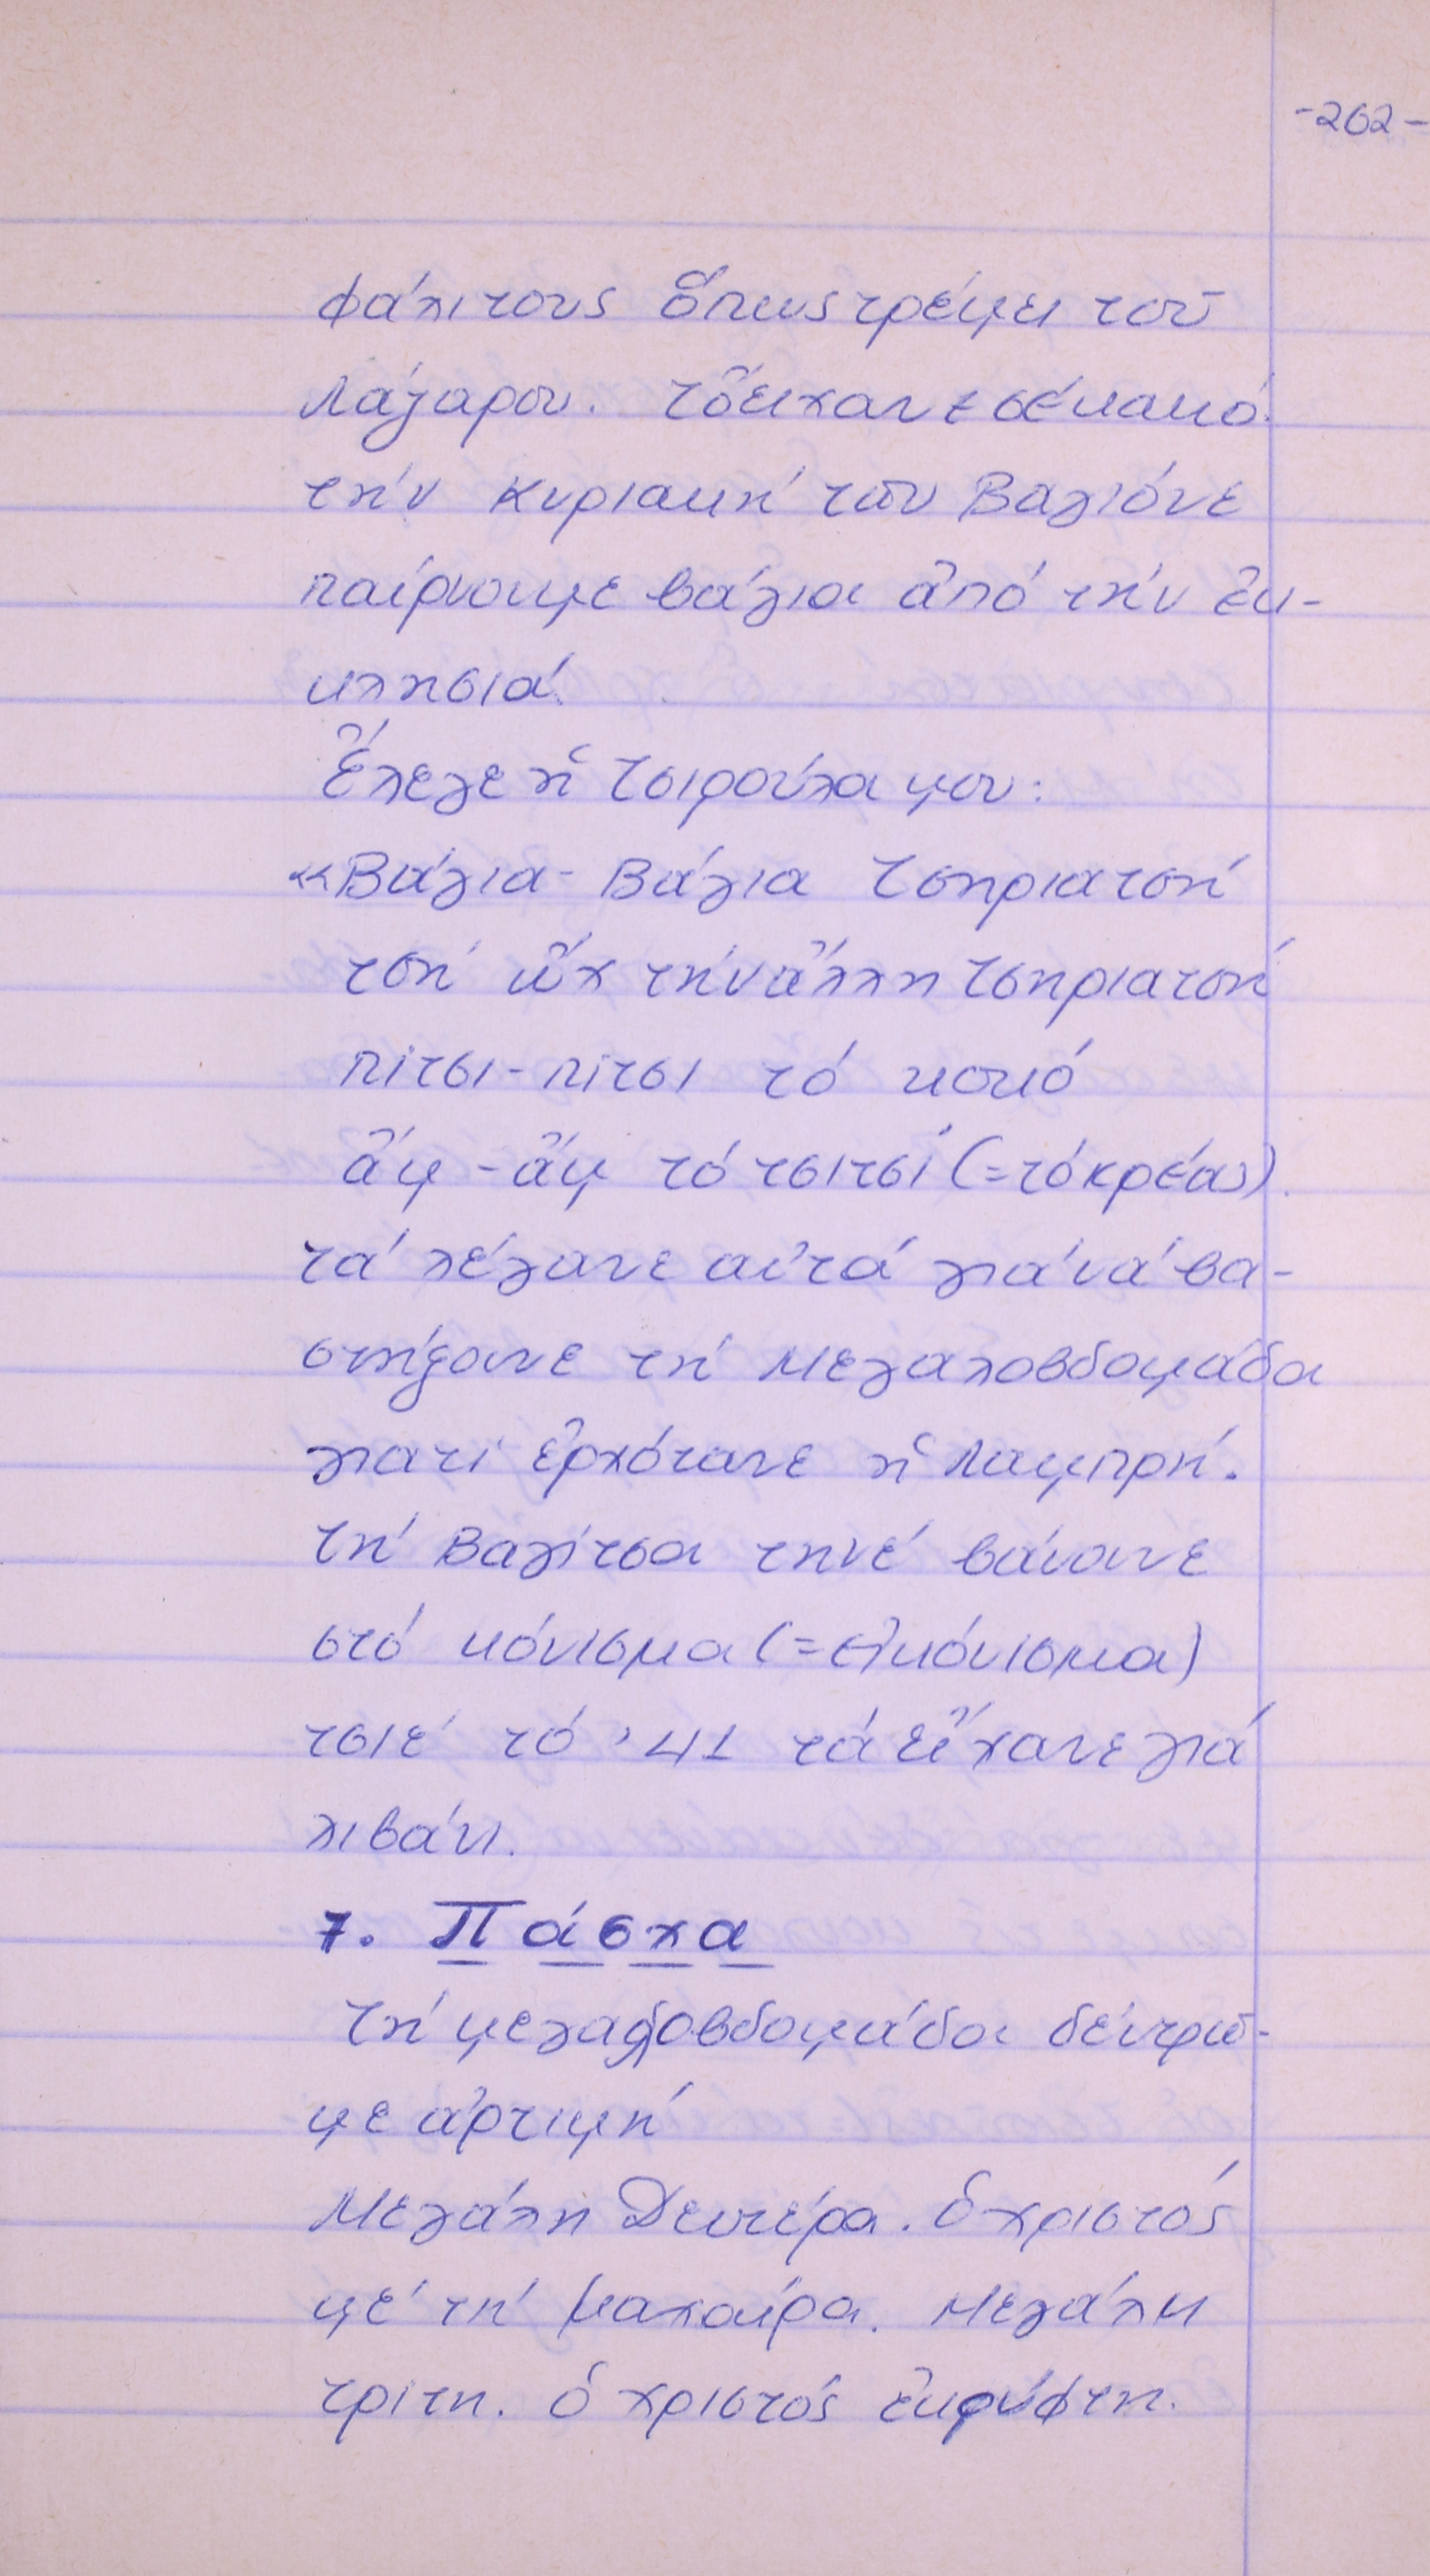 -262-
φάλι τους ὅπως τρέμει τοῦ
Λάζαρου. τὄειχανε σέκακό.
τήν Κυριακή τῶν Βαγιόνε
παίρνουμε βάγια ἀπό τήν ἐκ-
κλησιά.
Ἔλεγε ἡ τσιρούλα μου:
«Βάγια - Βάγια τσηριατσή
τσή ὤχ τήν ἄλλη τσηριατσή
πίτσι - πίτσι τό κουκό
ἄμ - ἄμ τό τσιτσί (= τό κρέας).
τά λέγανε αὐτά γιά νά βα-
στήξουνε τή Μεγαλοβδομάδα
γιατί ἐρχότανε ἡ Λαμπρή.
τή Βαγίτσα τηνέ βάνανε
στό κόνισμα (= εἰκόνισμα)
τσιέ τό '41 τά εἴχανε γιά
λιβάνι.
7. Πάσχα
τή μεγαλοβδομάδα δέν τρῶ-
με ἀρτιμή
Μεγάλη Δευτέρα. ὁ χριστός
μέ τή μαχαίρα. Μεγάλη
τρίτη. ὁ χριστός ἐκρύφτη.